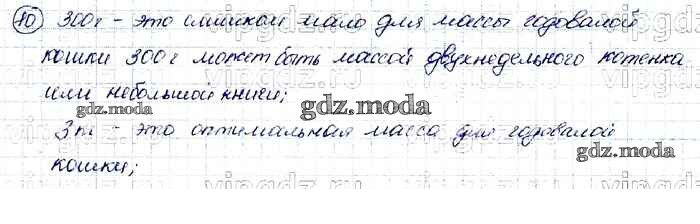 10) 300 г - это слишком мало для массы годовалой
кошки 300 г может быть массой двухнедельного котенка
или небольшой книги;
gdz.moda
gdz.moda
3 т - это оптимальная масса для годовалой
gdz.moda
кошки;